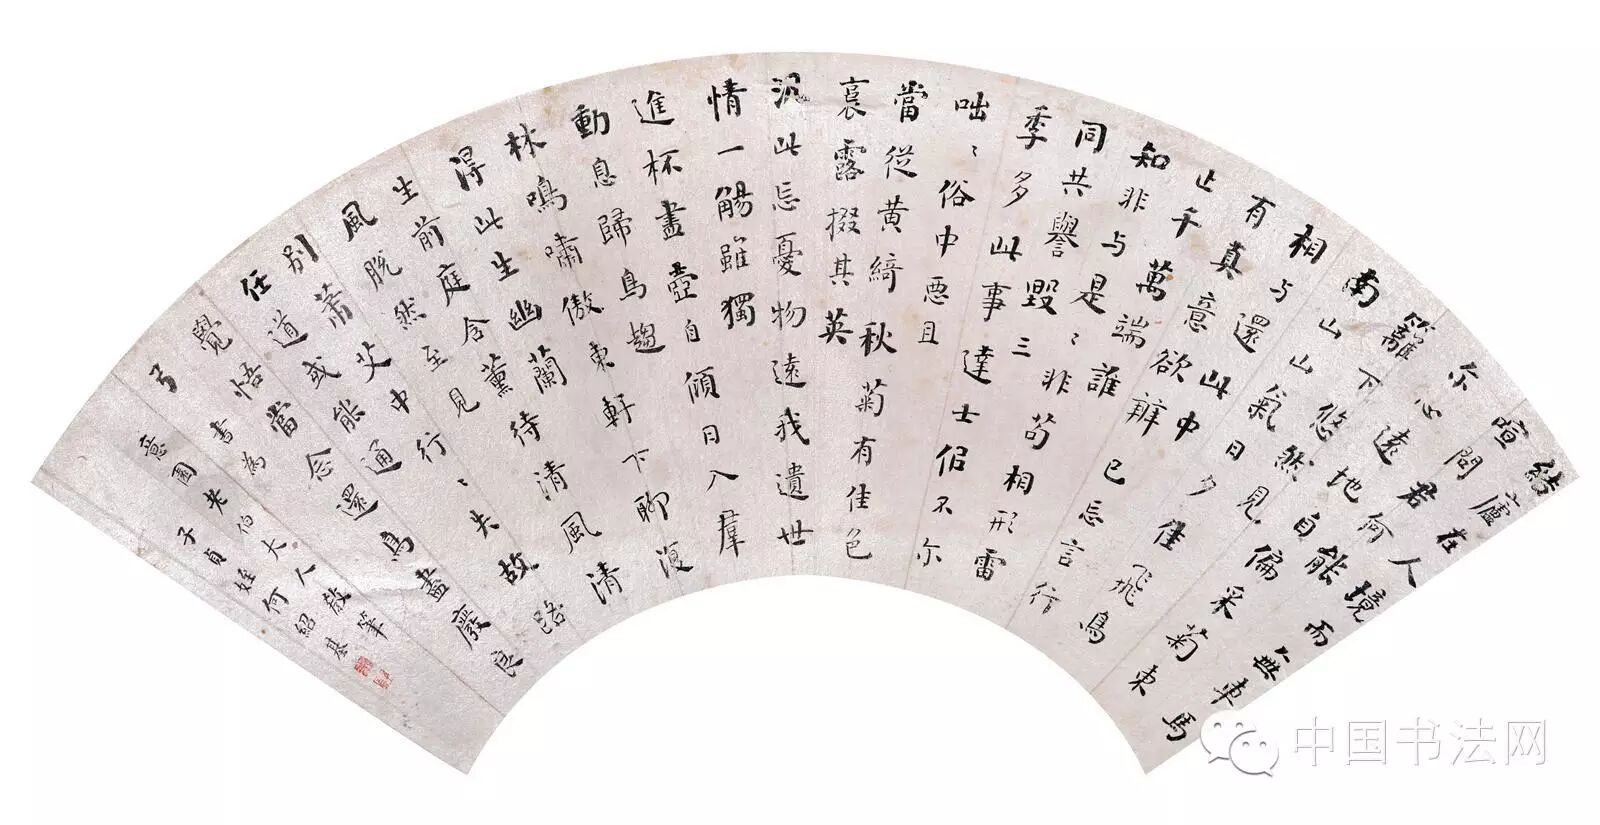 結廬在人境而無車馬
喧問君何能
尔心遠地自偏采菊東
籬下悠然見
南山山氣日夕佳飛鳥
相与還此中
有真意欲辨已忘言行
止千萬端誰
知非与是〻非苟相形雷
同共譽毀三
季多此事達士侣不尔
咄〻俗中惡且
當從黃綺秋菊有佳色
裛露掇其英
汎此忘憂物遠我遺世
情一觴雖獨
進杯盡壺自傾日入羣
動息歸鳥趨
林鳴嘯傲東軒下聊復
得此生幽蘭
生前庭含薰待清風清
風脫然至見
別蕭艾中行〻失故路
任道或能通
覺悟當念還鳥盡廢良
弓書為
意園老伯大人教筆
子貞姪何紹基
中国书法网